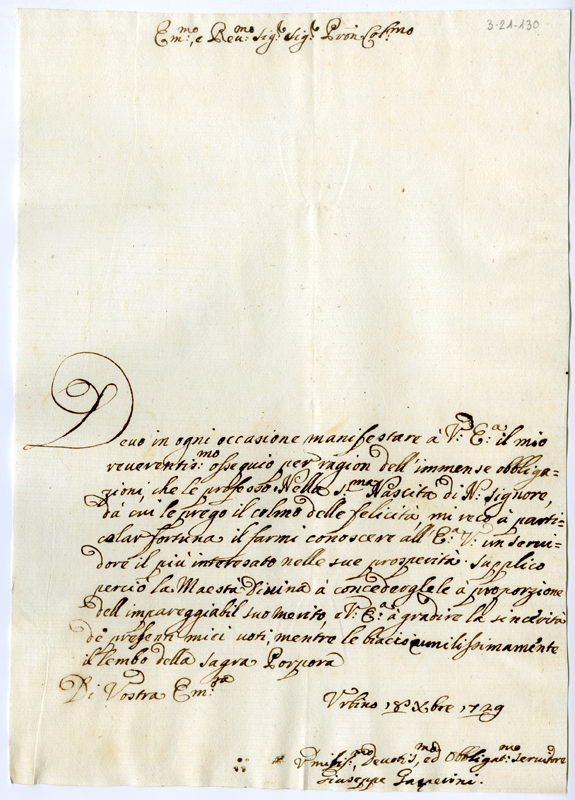 3-21-130
Em:mo, e Reu:mo Sig:r Sig:r Pron Col:mo
Devo in ogni occasione manifestare à V: E:a il mio
reverentis:mo ossequio per ragion dell'immense obbliga-
zioni, che le professo. Nella S:ma Nascita di N. Signore,
da cui le prego il colmo delle felicità, mi reco à parti-
colar fortuna il farmi conoscere all'E:a V: un servi-
dore il più interesato nelle sue prosperità. Supplico
perciò la Maestà Divina à concederglele à proporzione
dell'impareggiabil suo merito, e V: E:a à gradire la sincerità
de presenti miei voti, mentre le bacio umilissimamente
il lembo della sagra Porpora
Di Vostra Em:za
Urbino 18 Xbre 1729
Umilis:mo, Devotis:mo, ed Obbligat:mo Servitore
Giuseppe